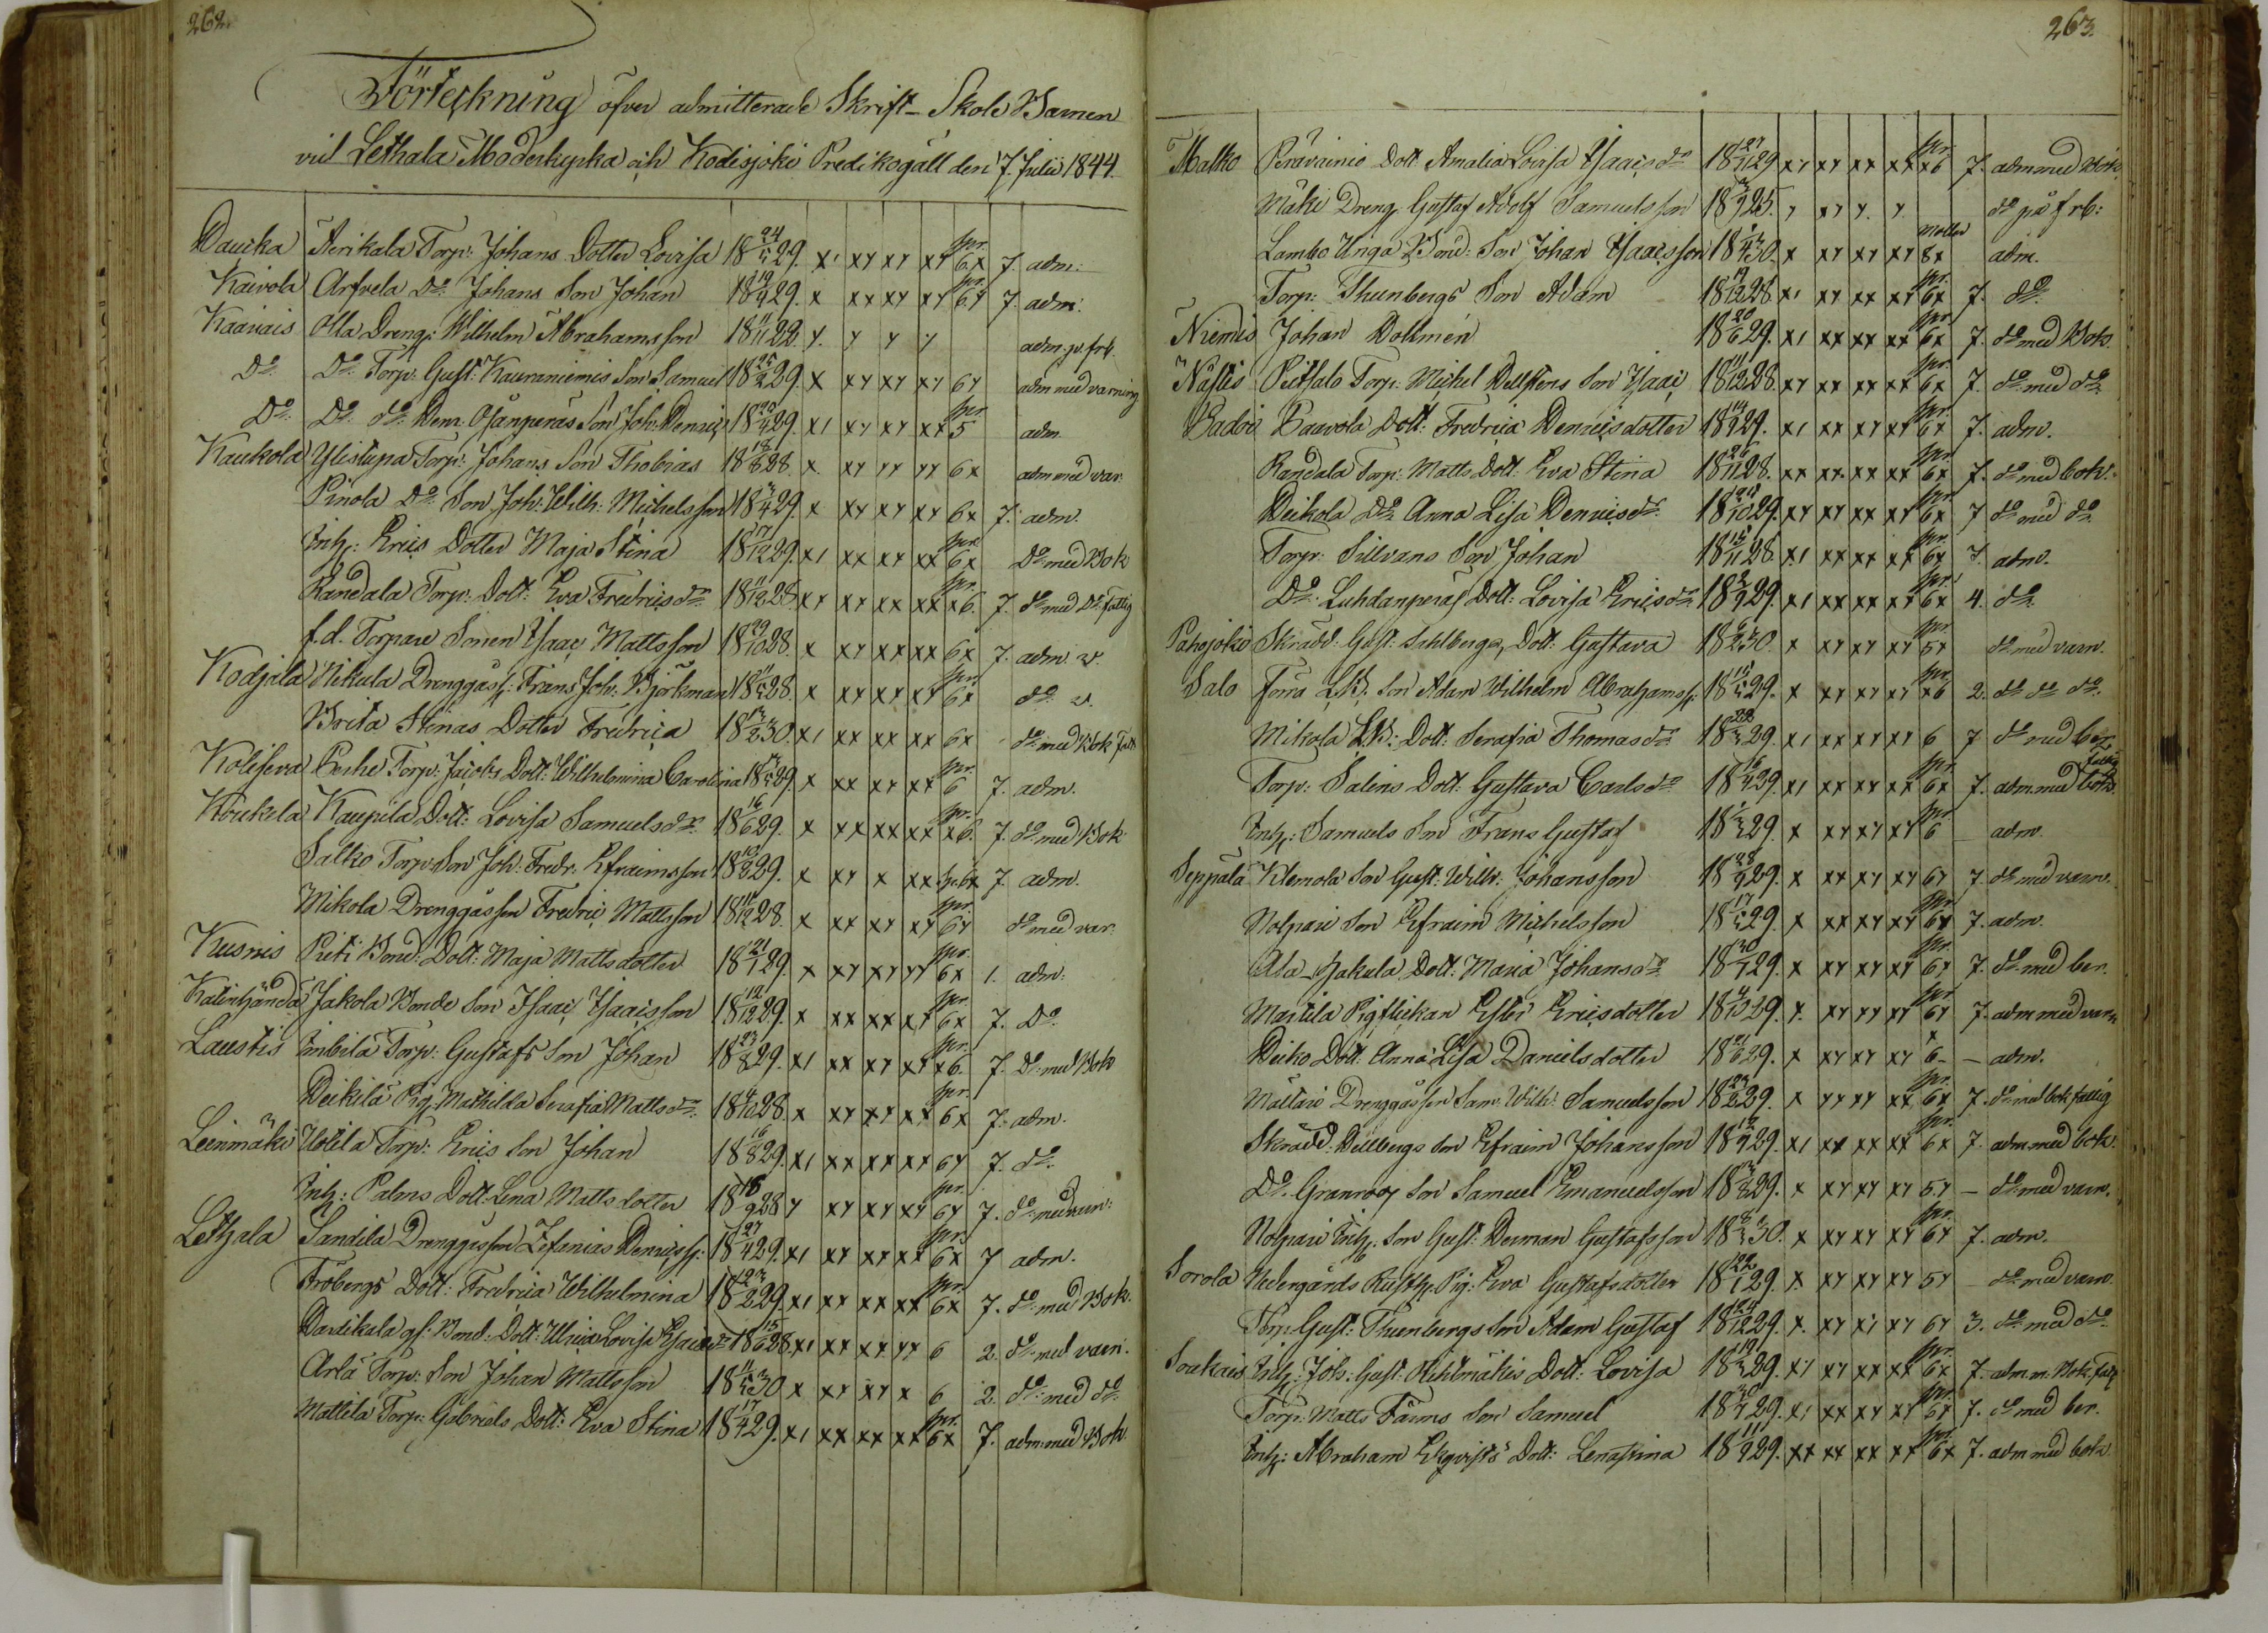 262.
Förteckning öfver admitterade Skrift-Skole Barnen
vid Lethala Moderkyrka och Kodisjoki Predikogäll den 7. Julii 1844.
Dauka Äerikala Torp: Johans Dotter Lovisa 18 24/5 29. x1 xy xy xy spr. 6x 7. adm:
Kaivola Arfvela Do. Johans Son Johan 18 19/9 29. x xx xy xy spr. 6y 7. adm:
Kaariais Olla Dreng: Wilhelm Abrahamsson 18 11/11 22. y. y y y adm. p. frb.
Do. Do. Torp: Gust: Kauraniemis Son Samuel 18 25/2 29. x xy xy xy 6y adm med varning
Do. Do. do. Denr. Ojanperäs Son Joh: Denric 18 20/4 29. x1 xy xy xx spr 5 adm.
Kaukola Ylistupa Torp: Johans Son Thobias 18 18/8 28. x. xy yy yy 6x adm med var.
Pinola Do. Son Joh: Wilh: Michelsson 18 3/4 29. x xy xy xy 6x 7. adm.
Inh: Erics Dotter Maja Stina 18 17/12 29. x1 xx xy xx spr. 6x Do. med Bok
Randala Torp: Dott: Eva Fredricsdr. 18 11/12 28. xy xy xx xx spr. x6. 7. do. med Do. Fattig
f.d. Torpare Sonen Isaac Mattsson 18 29/10 28. x xy xx xx 6x 7. adm v.
Kodjala Nikula Drenggåss: Frans Joh: Björkman 18 11/5 28. x xx xy xy spr. 6x do. v.
Brita Stinas Dotter Fredrica 18 13/2 30. x1 xx xx xx 6x do. med Bok Fatt
Kolijeva Perhe Torp: Jacobs Dott: Wilhelmina Carolina 18 29. x xx xy xx spr. 6 7. adm.
Koukela Kaupila Dott: Lovisa Samuelsdr. 18 16/6 29. x xx xx xx spr. x6. 7. do. med Bok
Salko Torp: Son Joh: Fredr. Efraimsson 18 10/8 29. x xy x xx spr. 6x 7 adm.
Mikola Drenggåsson Fredric Mattsson 18 11/12 28. x xx xy xy spr. 6y do. med var.
Kusnis Preti Bond: Dott: Maja Mattsdotter 18 21/1 29. x xy xy yy spr. 6x 1. adm:
Katinhändä Jakola Bonde Son Isaac Isaacsson 18 12/12 29. x xx xx xy spr. 6x 7. Do.
Laustis Imbila Torp: Gustafs Son Johan 18 23/8 29. x1 xx xy xy spr. x6. 7. Do. med Bok
Deikilä Pig: Mathilda Serafia Mattsdr. 18 4/10 28. x xy xy xx spr. 6x 7. adm.
Leinmäki Uotila Torp: Erics Son Johan 18 16/8 29. x1 xx xx xx 6y 7. do.
Inh: Palms Dott: Lena Mattsdotter 18 18/9 28 y xy xy xy spr. 6y 7. do. med varn:
Lethala Sandila Drenggåsson Zefanias Denricss: 18 27/4 29. x1 xx xy xx spr. 6x 7 adm.
Fröbergs Dott: Fredrica Wilhelmina 18 23/2 29. x1 xx xx xx spr. 6x 7. do. med Bok.
Dartikala gl: Bond: Dott: Ulrica Lovisa Isacsdr 18 15/6 28. x1 xx xx yy 6 2. do. med varn.
Arlä Torp: Son Johan Mattsson 18 11/5 30 x xy xy x 6 2 do. med do.
Mattila Torp: Gabriels Dott: Eva Stina 18 17/4 29. x1 xx xx xx spr. 6x 7. adm med Bok
263.
Malko Peräväinio Dott Amalia Lovisa Isaacsdr 18 27/11 29 xy xy xx xx spr. x6 7. adm med Bok.
Mäki Dreng: Gustaf Adolf Samuelsson 18 3/9 25. y xy y. y. do. på frb:
Lambo Unga Bond: Son Johan Isaacsson 18 13/4 30. x xy xy xy moller 8x adm.
Torp: Thunbergs Son Adam 18 19/12 28. x1 xy xx xy spr. 6x 7. do.
Niemis Johan Dolkmen 18 20/6 29. x1 xx xx xx spr 6x 7. do. med Bok.
Nästis Peitsalo Torp: Michel Dellstens Son Isaac 18 11/12 28. xy xx xx xx spr. 6x 7. do. med do.
Badoi Baavola Dott: Fredrica Denricsdotter 18 14/9 29. x1 xx xy xy spr. 6x 7. adm.
Randala Torp: Matts Dott: Eva Stina 18 26/11 28. xx xx xx xx spr. 6x 7. do. med bok.
Deikola Do. Anna Lisa Denricsdr. 18 28/10 29. xy xy xx xy spr. 6x 7 do. med do.
Torp: Sillvans Son Johan 18 15/11 28. x1 xx xx xx spr. 6y 7. adm.
Do. Luhdanperäs Dott: Lovisa Ericsdr. 18 2/9 29. x1 xx xx xx spr. 6x 4. do.
Pahojoki Skrädd: Gust: Sahlbergs, Dott: Gustava 18 6/2 30. x xy xy xy spr. 5x do. med varn.
Salo forra L.B. Son Adam Wilhelm Abrahamss: 18 15/5 29. x xy xy xy spr. x6 2. do do do.
Mikola L.B.: Dott: Serafia Thomasdr 18 28/3 29. x1 xx xy xy 6 7 do. med ber.
Torp: Salins Dott: Gustava Carlsdr 18 16/4 29. x1 xx xx xx spr. 6x 7. adm med bok. fattig
Inh: Samuels Son Frans Gustaf 18 1/3 29. x xy xy xy spr. 6 adm.
Seppälä Klemola Son Gust: Wilh: Johansson 18 28/9 29. x xx xy xy 6y 7. do. med varn.
Nolpari Son Efraim Michelsson 18 17/5 29. x xx xy xy spr. 6x 7. adm.
Ala-Jakula Dott: Maria Johansdr 18 30/7 29. x xy xy xy spr. 6x 7. do. med ber.
Martila Pigflickan Ester Ericsdotter 18 4/10 29. x. xy yy xy spr. 6y 7. adm med varn
Deiko Dott: Anna Lisa Danielsdotter 18 21/6 29. x xy xy xy x 6 – – adm.
Mältäri Drenggåsson Sam: Wilh: Samuelsson 18 23/2 29. x yy yy xx spr. 6x 7. do. med bok fattig
Skrädd: Dellbergs Son Efraim Johansson 18 12/4 29. x1 xx xx xx spr. 6x 7. adm med bok.
Do. Granroos Son Samuel Emanuelsson 18 13/8 29. x xy xy xy 5.y – do. med varn.
Nolpari Inh: Son Gust: Derman Gustafsson 18 8/3 30. x xy xy xy spr. 6y 7. adm.
Sorola Nedergårds Rusth: Pig: Eva Gustafsdotter 18 22/1 29. x. xy xy xy 5y – do. med varn.
Torp: Gust: Thunbergs Son Adam Gustaf 18 24/12 29. x. xy xy xy 6y 3. do. med do.
Soukais Inh: Joh: Gust: Kihlmäkis Dott: Lovisa 18 19/3 29. xy xy xx xx spr. 6x 7. adm m. Bok Fatt
Torp: Matts Färms Son Samuel 18 30/7 29. x1 xx xy xy spr. 6y 7. do. med ber.
Inh: Abraham Ekqvists Dott: Lenastina 18 11/9 29. xx xx xx xx spr. 6x 7. adm med bok.